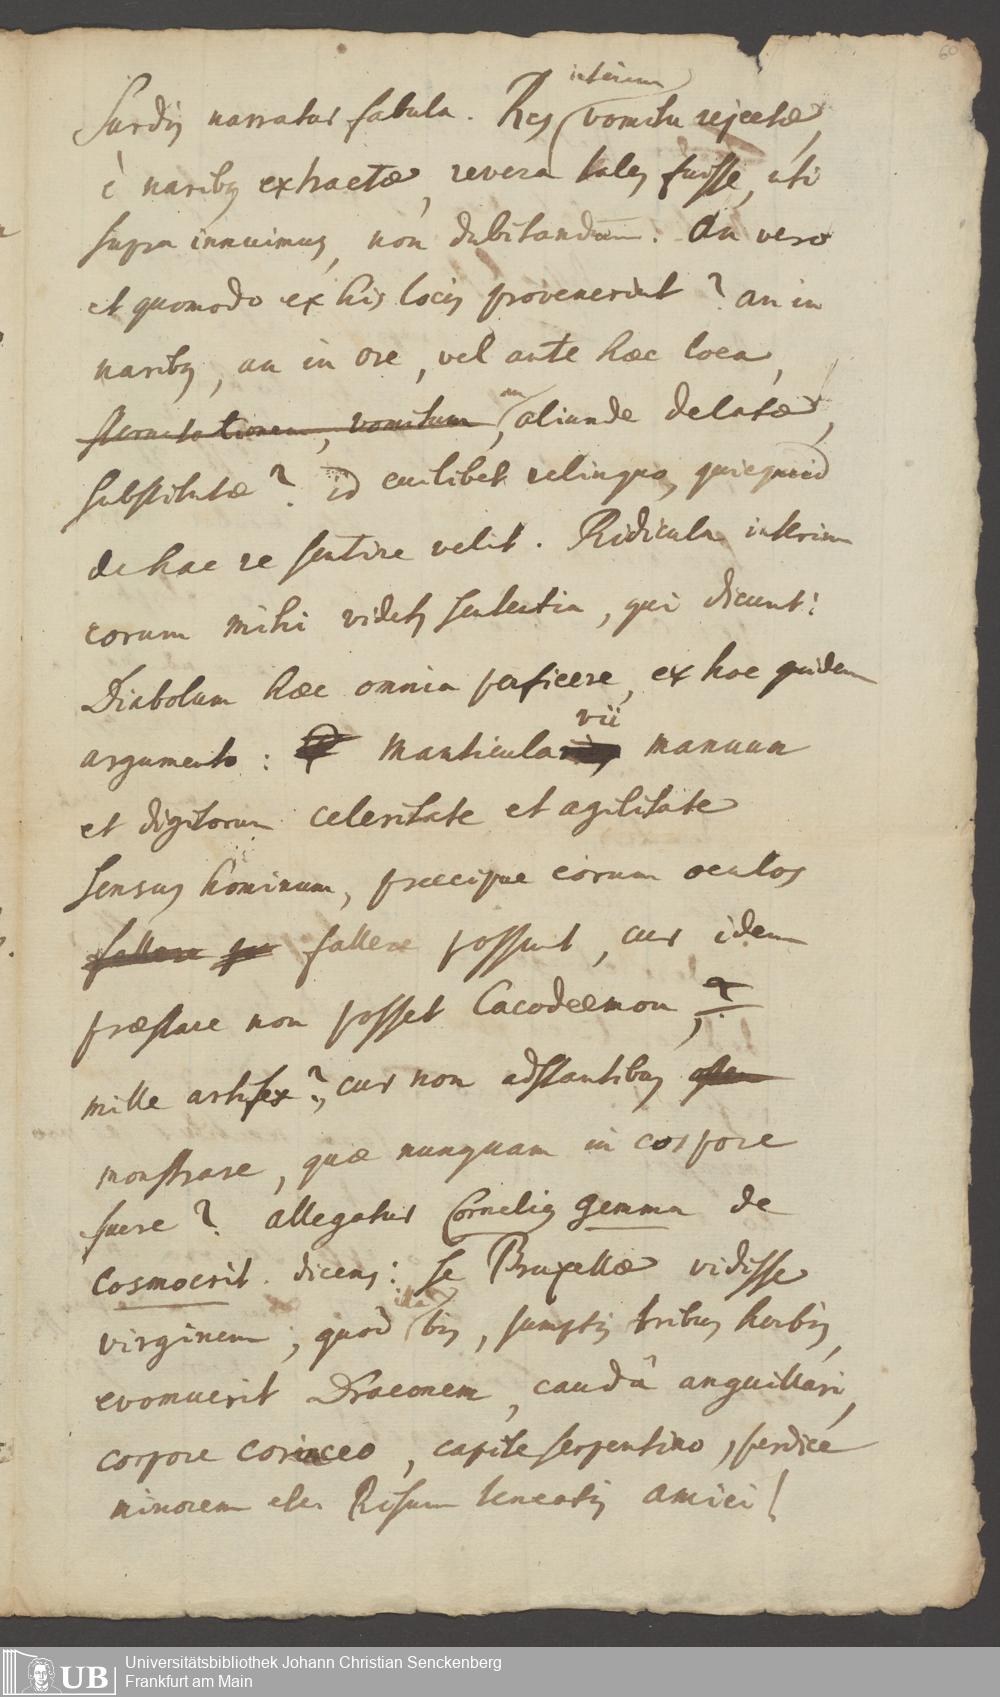 60
interim
Surdis narratur fabula. Res vomitu rejectæ,
è naribus extractæ, revera tales fuisse, uti
supra innuimus, non dubitandum. An vero
et quomodo ex his locis provenerint? an in
naribus, an in ore, vel ante hæc loca,
sternutationem, vomitum, an aliunde delatæ,
substitutæ? id cuilibet relinquo, quicquid
de hac re sentire velit. Ridicula interim
eorum mihi videtur sententia, qui dicunt:
Diabolum hæc omnia perficere, ex hoc quidem
vii
argumento: Manticularii manuum
et digitorum celeritate et agilitate
sensus hominum, præcipue eorum oculos
fallere fallere possunt, cur idem
præstare non posset Cacodæmon,
mille artifex? cur non adstantibus
monstrare, quæ nunquam in corpore
fuere? allegatur Cornelius Gemma de
Cosmocrit. dicens: se Bruxellæ vidisse
illa
virginem, quod bis, sumptis tribus herbis,
evomuerit Draconem, caudâ anguillari,
corpore coriaceo, capite serpentino, perdice
minorem etc. Risum teneatis amici!
UB Universitätsbibliothek Johann Christian Senckenberg
Frankfurt am Main